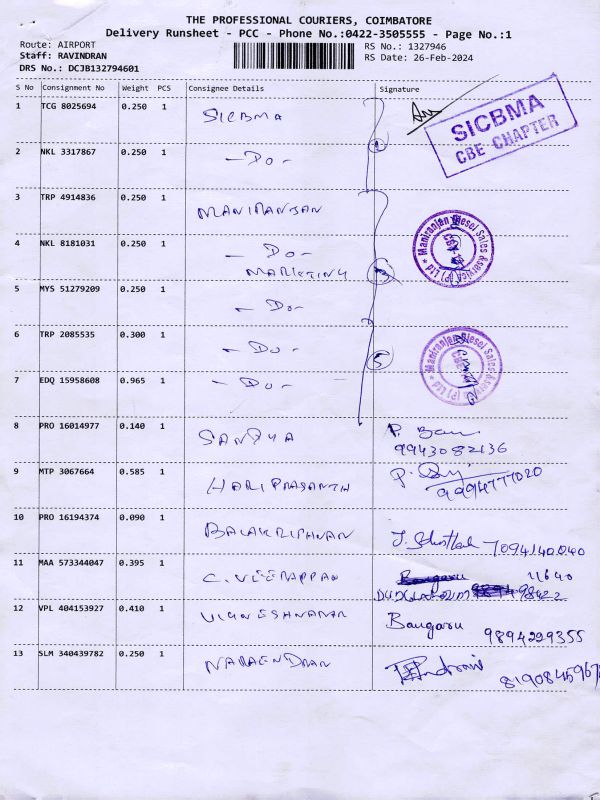 THE PROFESSIONAL COURIERS, COIMBATORE
Delivery Runsheet - PCC - Phone No.:0422-3505555 - Page No.:1
Route: AIRPORT RS No.: 1327946
Staff: RAVINDRAN RS Date: 26-Feb-2024
DRS No.: DCJB132794601
S No Consignment No Weight PCS Consignee Details Signature
1 TCG 8025694 0.250 1 SICBMA
SICBMA
CBE CHAPTER
2 NKL 3317867 0.250 1 - DO -
3 TRP 4914836 0.250 1 MANIRANJAN
Maniranjan Diesel Sales & Service (P) Ltd
4 NKL 8181031 0.250 1 - DO -
MARKETING
5 MYS 51279209 0.250 1 - DO -
6 TRP 2085535 0.300 1 - DO - 5
Maniranjan Diesel Sales & Service (P) Ltd
7 EDQ 15958608 0.965 1 - DO -
8 PRO 16014977 0.140 1 SANDYA P.
9943082136
9 MTP 3067664 0.585 1 HARIPRASANTH P.
9994777020
10 PRO 16194374 0.090 1 BALAKRISHNAN J. 7094140040
11 MAA 573344047 0.395 1 C. VEERAPPAN 11640
12 VPL 404153927 0.410 1 VIGNESHWARAN Bangaru
9894299355
13 SLM 340439782 0.250 1 NARAENDRAN